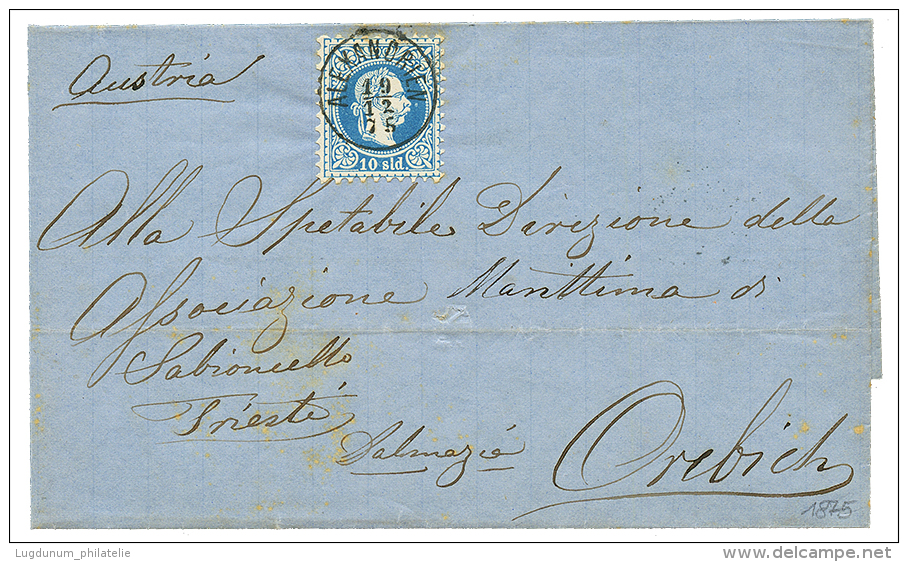 Austria
ALEXANDRIEN
19
12
75
10 sld.
Alla Spetabile Direzione della
Associazione Marittima di
Sabioncello
Trieste
Dalmazia
Orebich
1875
Lugdunum_philatelie
www.delcampe.net